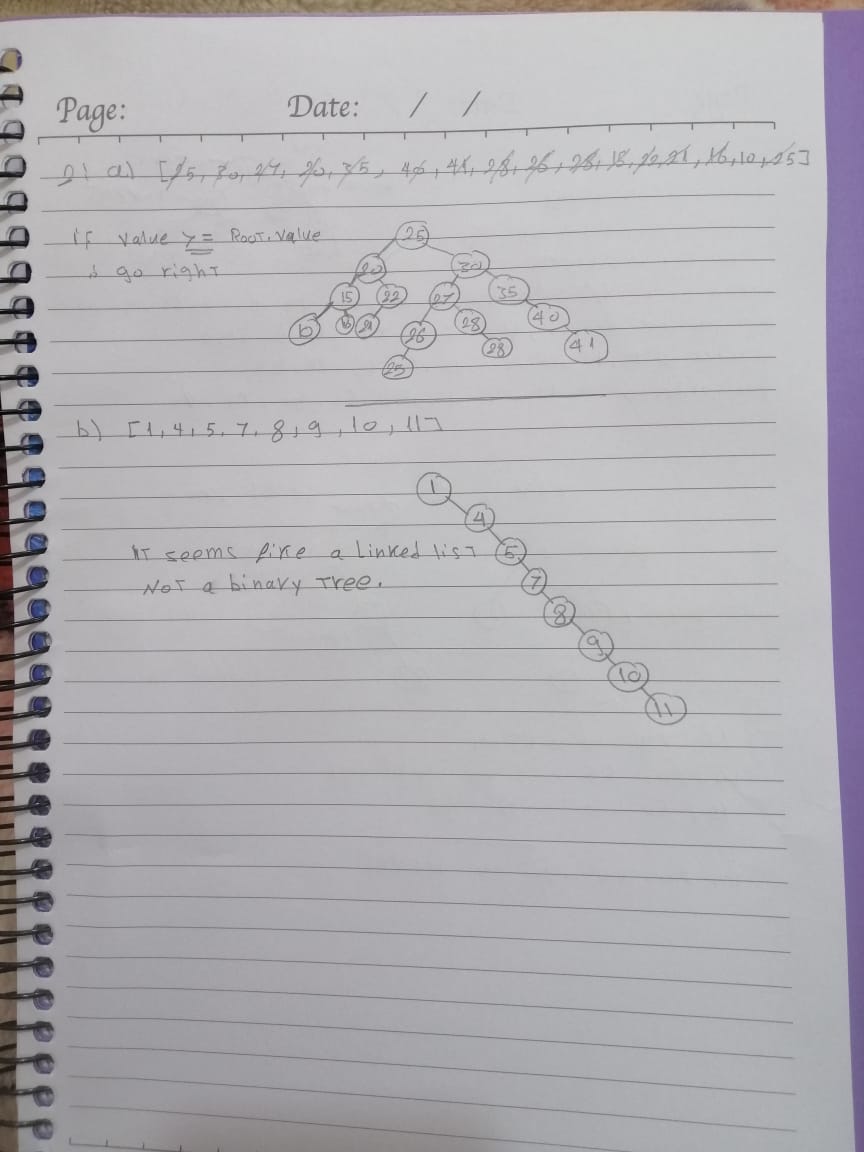 Page: Date: / /
2) a) [25, 30, 27, 20, 35, 40, 41, 28, 26, 28, 15, 22, 21, 16, 10, 25]
if value >= Root.value
↳ go right
25
20 30
15 22 27 35
10 16 21 26 28 40
25 28 41
b) [1, 4, 5, 7, 8, 9, 10, 11]
1
4
It seems like a Linked list 5
NOT a binary Tree. 7
8
9
10
11